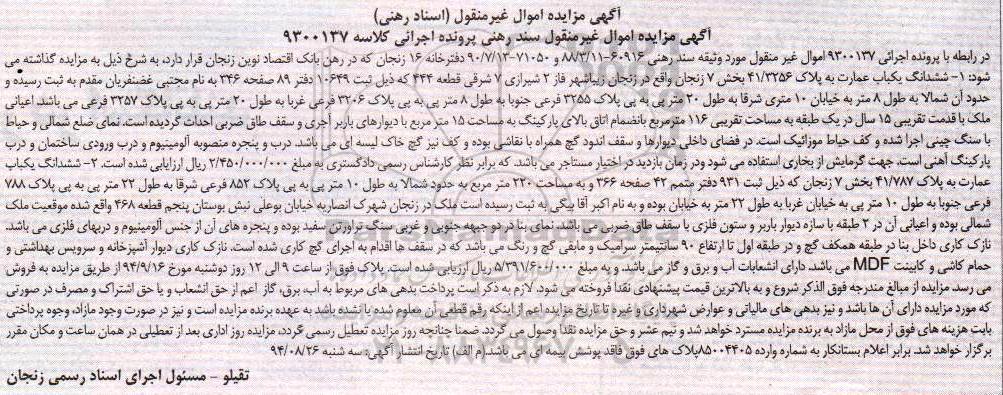 آگهی مزایده اموال غیرمنقول (اسناد رهنی)
آگهی مزایده اموال غیرمنقول سند رهنی پرونده اجرائی کلاسه ۹۳۰۰۱۳۷
در رابطه با پرونده اجرائی ۹۳۰۰۱۳۷ اموال غیر منقول مورد وثیقه سند رهنی ۶۰۹۱۶-۸۸/۳/۱۱ و ۷۱۰۵۰-۹۰/۷/۱۳ دفترخانه ۱۶ زنجان که در رهن بانک اقتصاد نوین زنجان قرار دارد، به شرح ذیل به مزایده گذاشته می
شود: ۱- ششدانگ یکباب عمارت به پلاک ۴۱/۳۲۵۶ بخش ۷ زنجان واقع در زنجان زیباشهر فاز ۲ شیرازی ۷ شرقی قطعه ۴۴۴ که ذیل ثبت ۱۰۶۴۹ دفتر ۸۹ صفحه ۳۴۶ به نام مجتبی غضنفریان مقدم به ثبت رسیده و
حدود آن شمالا به طول ۸ متر به خیابان ۱۰ متری شرقا به طول ۲۰ متر پی به پی پلاک ۳۲۵۵ فرعی جنوبا به طول ۸ متر پی به پی پلاک ۳۲۰۶ فرعی غربا به طول ۲۰ متر پی به پی پلاک ۳۲۵۷ فرعی می باشد. اعیانی
ملک با قدمت تقریبی ۱۵ سال در یک طبقه به مساحت تقریبی ۱۱۶ مترمربع بانضمام اتاق بالای پارکینگ به مساحت ۱۵ متر مربع با دیوارهای باربر آجری و سقف طاق ضربی احداث گردیده است. نمای ضلع شمالی و حیاط
با سنگ چینی اجرا شده و کف حیاط موزائیک است. در فضای داخلی دیوارها و سقف اندود گچ همراه با نقاشی بوده و کف نیز گچ خاک لیسه ای می باشد. درب و پنجره منصوبه آلومینیوم و درب ورودی ساختمان و درب
پارکینگ آهنی است. جهت گرمایش از بخاری استفاده می شود ودر زمان بازدید در اختیار مستاجر می باشد. که برابر نظر کارشناس رسمی دادگستری به مبلغ ۲/۴۵۰/۰۰۰/۰۰۰ ریال ارزیابی شده است. ۲- ششدانگ یکباب
عمارت به پلاک ۴۱/۷۸۷ بخش ۷ زنجان که ذیل ثبت ۹۳۱ دفتر متمم ۴۲ صفحه ۳۶۶ و به مساحت ۲۲۰ متر مربع به حدود شمالا به طول ۱۰ متر پی به پی پلاک ۸۵۲ فرعی شرقا به طول ۲۲ متر پی به پی پلاک ۷۸۸
فرعی جنوبا به طول ۱۰ متر پی به خیابان غربا به طول ۲۲ متر به خیابان بوده و به نام اکبر آقا بیگی به ثبت رسیده است ملک در زنجان شهرک انصاریه خیابان بوعلی نبش بوستان پنجم قطعه ۴۶۸ واقع شده موقعیت ملک
شمالی بوده و اعیانی آن در ۲ طبقه با سازه دیوار باربر و ستون فلزی با سقف طاق ضربی می باشد. نمای بنا در دو جبهه جنوبی و غربی سنگ تراورتن سفید بوده و پنجره های آن از جنس آلومینیوم و دربهای فلزی می باشد.
نازک کاری داخل بنا در طبقه همکف گچ و در طبقه اول تا ارتفاع ۹۰ سانتیمتر سرامیک و مابقی گچ و رنگ می باشد که در سقف ها اقدام به اجرای گچ کاری شده است. نازک کاری دیوار آشپزخانه و سرویس بهداشتی و
حمام کاشی و کابینت MDF می باشد. دارای انشعابات آب و برق و گاز می باشد. و به مبلغ ۵/۳۹۱/۶۰۰/۰۰۰ ریال ارزیابی شده است. پلاک فوق از ساعت ۹ الی ۱۲ روز دوشنبه مورخ ۹۴/۹/۱۶ از طریق مزایده به فروش
می رسد. مزایده از مبالغ مندرجه فوق الذکر شروع و به بالاترین قیمت پیشنهادی نقدا فروخته می شود. لازم به ذکر است پرداخت بدهی های مربوط به آب، برق، گاز اعم از حق انشعاب و یا حق اشتراک و مصرف در صورتی
که مورد مزایده دارای آن ها باشد و نیز بدهی های مالیاتی و عوارض شهرداری و غیره تا تاریخ مزایده اعم از اینکه رقم قطعی آن معلوم شده یا نشده باشد به عهده برنده مزایده است و نیز در صورت وجود مازاد، وجوه پرداختی
بابت هزینه های فوق از محل مازاد به برنده مزایده مسترد خواهد شد و نیم عشر و حق مزایده نقدا وصول می گردد. ضمنا چنانچه روز مزایده تعطیل رسمی گردد، مزایده روز اداری بعد از تعطیلی در همان ساعت و مکان مقرر
برگزار خواهد شد. برابر اعلام بستانکار به شماره وارده ۸۵۰۰۴۴۰۵ پلاک های فوق فاقد پوشش بیمه ای می باشد.(م الف) تاریخ انتشار آگهی: سه شنبه ۹۴/۰۸/۲۶
تقیلو - مسئول اجرای اسناد رسمی زنجان